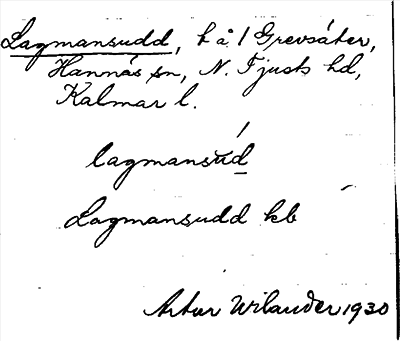 Lagmansudd, t å 1 Grevsäter,
Hannäs sn, N. Tjusts hd,
Kalmar l.
lagmansúd
Lagmansudd kb
Artur Wilander 1930